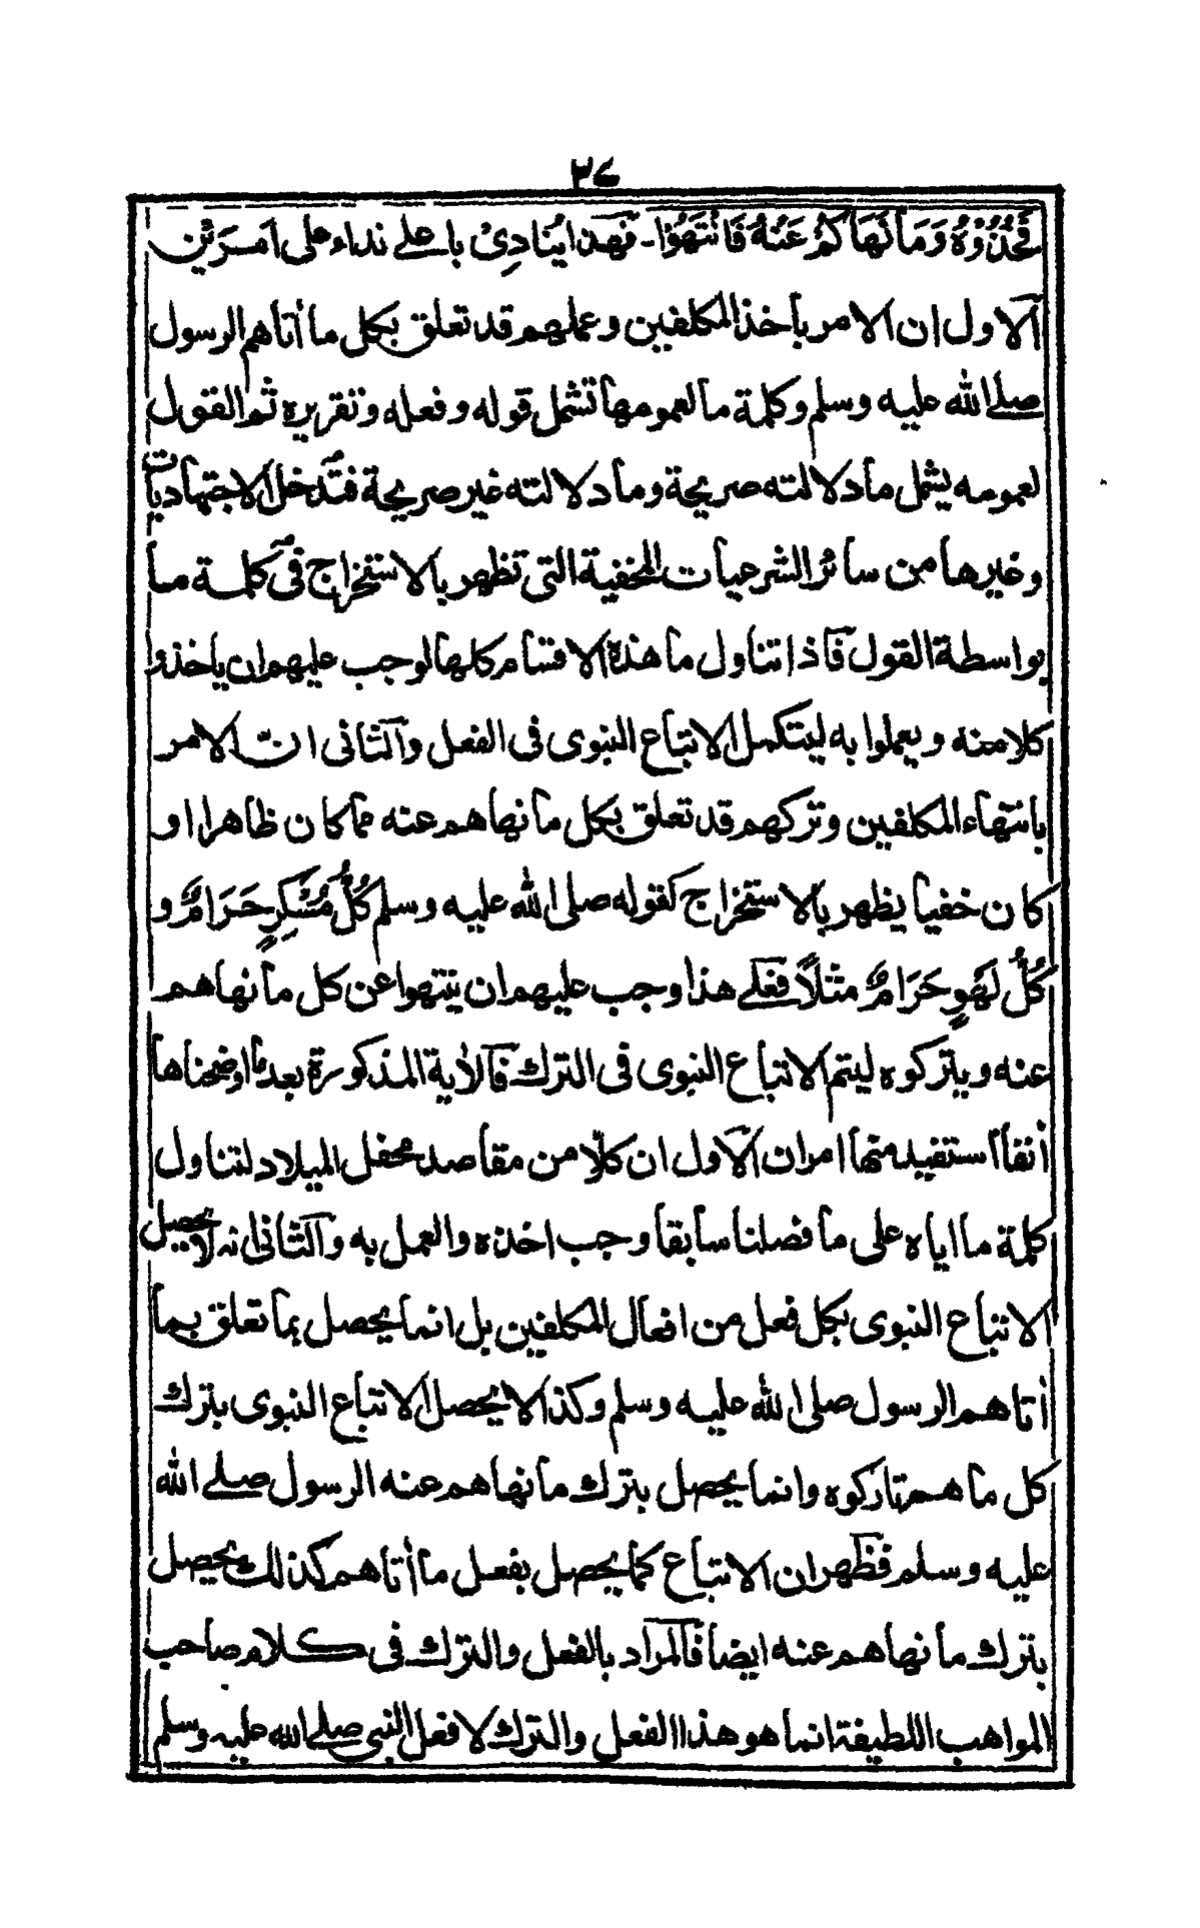 ٣٤
فَخُذُوْهُ وَمَا نَهَاكُمْ عَنْهُ فَانْتَهُوْا۔ فهذا يُنَادِىْ باعلے نداء على اَمْرَيْن
الاول ان الامر باخذ المكلفين وعملهم قد تعلق بكل ما أتاهم الرسول
صلے الله عليه وسلم وكلمة ما لعمومها تشمل قوله وفعله وتقريره ثم القول
لعمومه يشمل ما دلالته صريحة وما دلالته غير صريحة فتدخل الاجتهاديات
وغيرها من سائر الشرعيات المخفية التى تظهر بالاستخراج فى كلمة ما
بواسطة القول فاذا تناول ما هذه الاقسام كلها لوجب عليهم ان ياخذوا
كلا منه ويعملوا به ليتكمل الاتباع النبوى فى الفعل والثانى انّ الامر
بانتهاء المكلفين وتركهم قد تعلق بكل ما نهاهم عنه مما كان ظاهرا او
كان خفيا يظهر بالاستخراج كقوله صلى الله عليه وسلم كُلُّ مُسْكِرٍ حَرَامٌ و
كُلُّ لَهْوٍ حَرَامٌ مثلاً فعلے هذا وجب عليهم ان ينتهوا عن كل ما نهاهم
عنه ويتركوه ليتم الاتباع النبوى فى الترك فالأية المذكورة بعد ما اوضحناها
أنفا استفيد منها امران الاول ان كلّا من مقاصد محفل الميلاد لتناول
كلمة ما اياه على ما فصلنا سابقا وجب اخذه والعمل به والثانى انه لا يحصل
الاتباع النبوى بكل فعل من افعال المكلفين بل انما يحصل بما تعلق بما
أتاهم الرسول صلى الله عليه وسلم وكذا لا يحصل الاتباع النبوى بترك
كل ما هم تاركوه وانما يحصل بترك ما نهاهم عنه الرسول صلے الله
عليه وسلم فظهر ان الاتباع كما يحصل بفعل ما أتاهم كذلك يحصل
بترك ما نهاهم عنه ايضا فالمراد بالفعل والترك فى كلام صاحب
المواهب اللطيفة انما هو هذا الفعل والترك لا فعل النبى صلے الله عليه وسلم